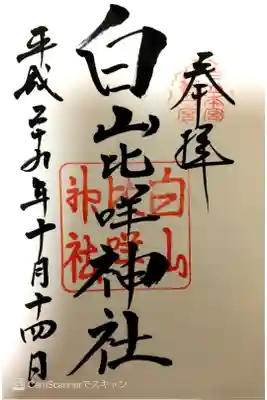 奉拝
白山比咩神社
白山
比咩
神社
平成二十九年十月十四日
CamScannerでスキャン